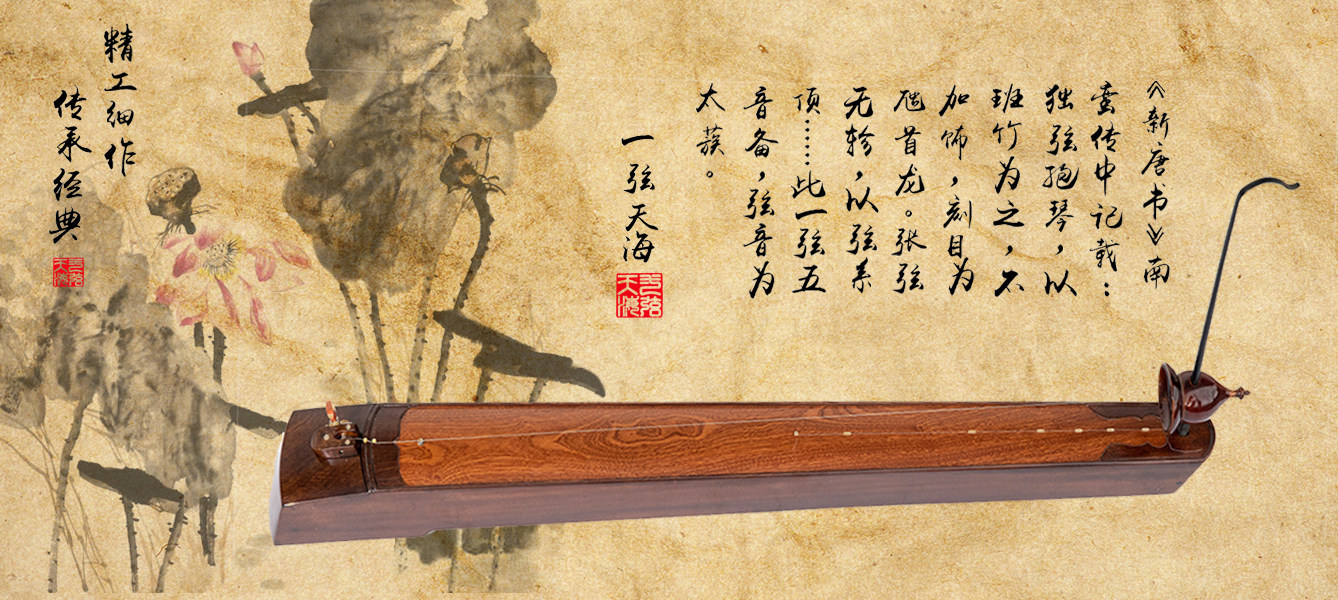 《新唐书》南
蛮传中记载：
独弦匏琴，以
班竹为之，不
加饰，刻目为
虺首龙。张弦
无轸，以弦系
顶……此一弦五
音备，弦音为
太蔟。
一弦天海
精工细作
传承经典